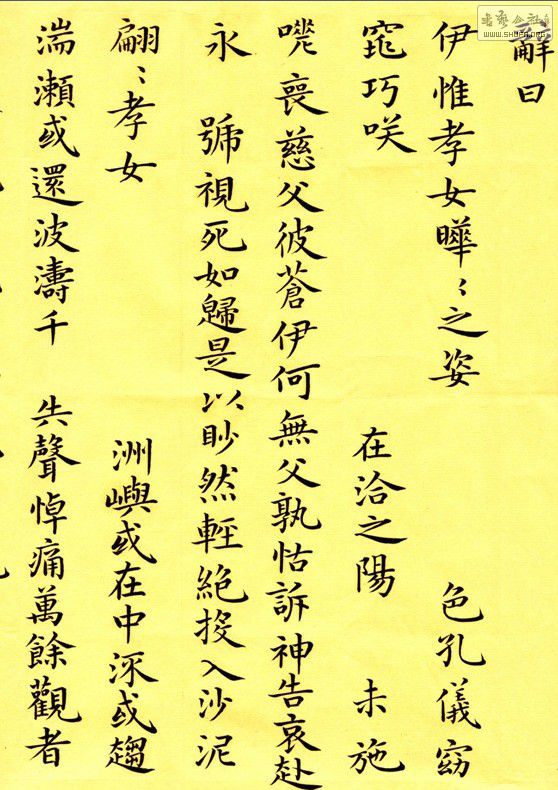 辭曰
伊惟孝女曄〻之姿 色孔儀窈
窕巧咲 在洽之陽 未施
嗟喪慈父彼蒼伊何無父孰怙訴神告哀赴
永 號視死如歸是以眇然輕絕投入沙泥
翩〻孝女 洲嶼或在中流或趨
湍瀨或還波濤千 失聲悼痛萬餘觀者
WWW.SHUFA.ORG